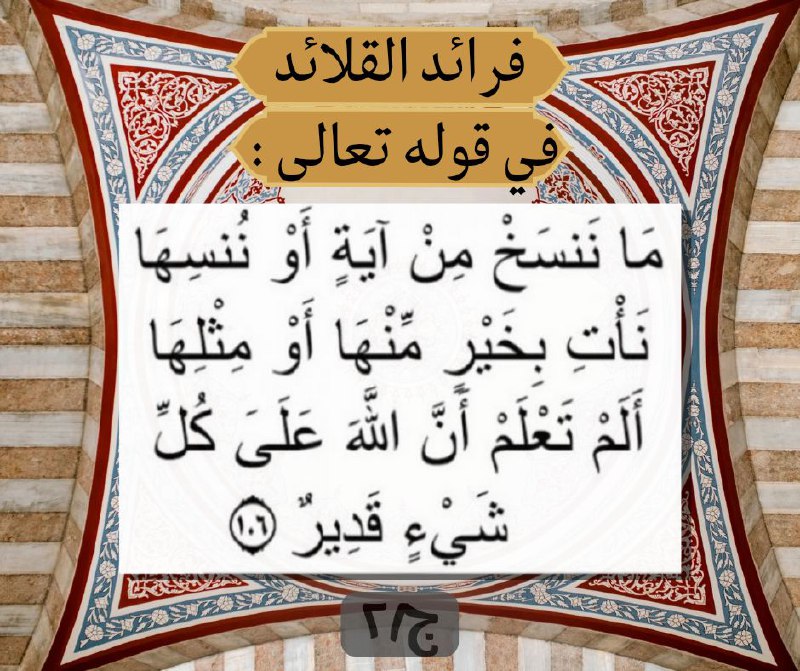 فرائد القلائد
في قوله تعالى :
مَا نَنسَخْ مِنْ آيَةٍ أَوْ نُنسِهَا
نَأْتِ بِخَيْرٍ مِّنْهَا أَوْ مِثْلِهَا
أَلَمْ تَعْلَمْ أَنَّ اللَّهَ عَلَىَ كُلِّ
شَيْءٍ قَدِيرٌ ١٠٦